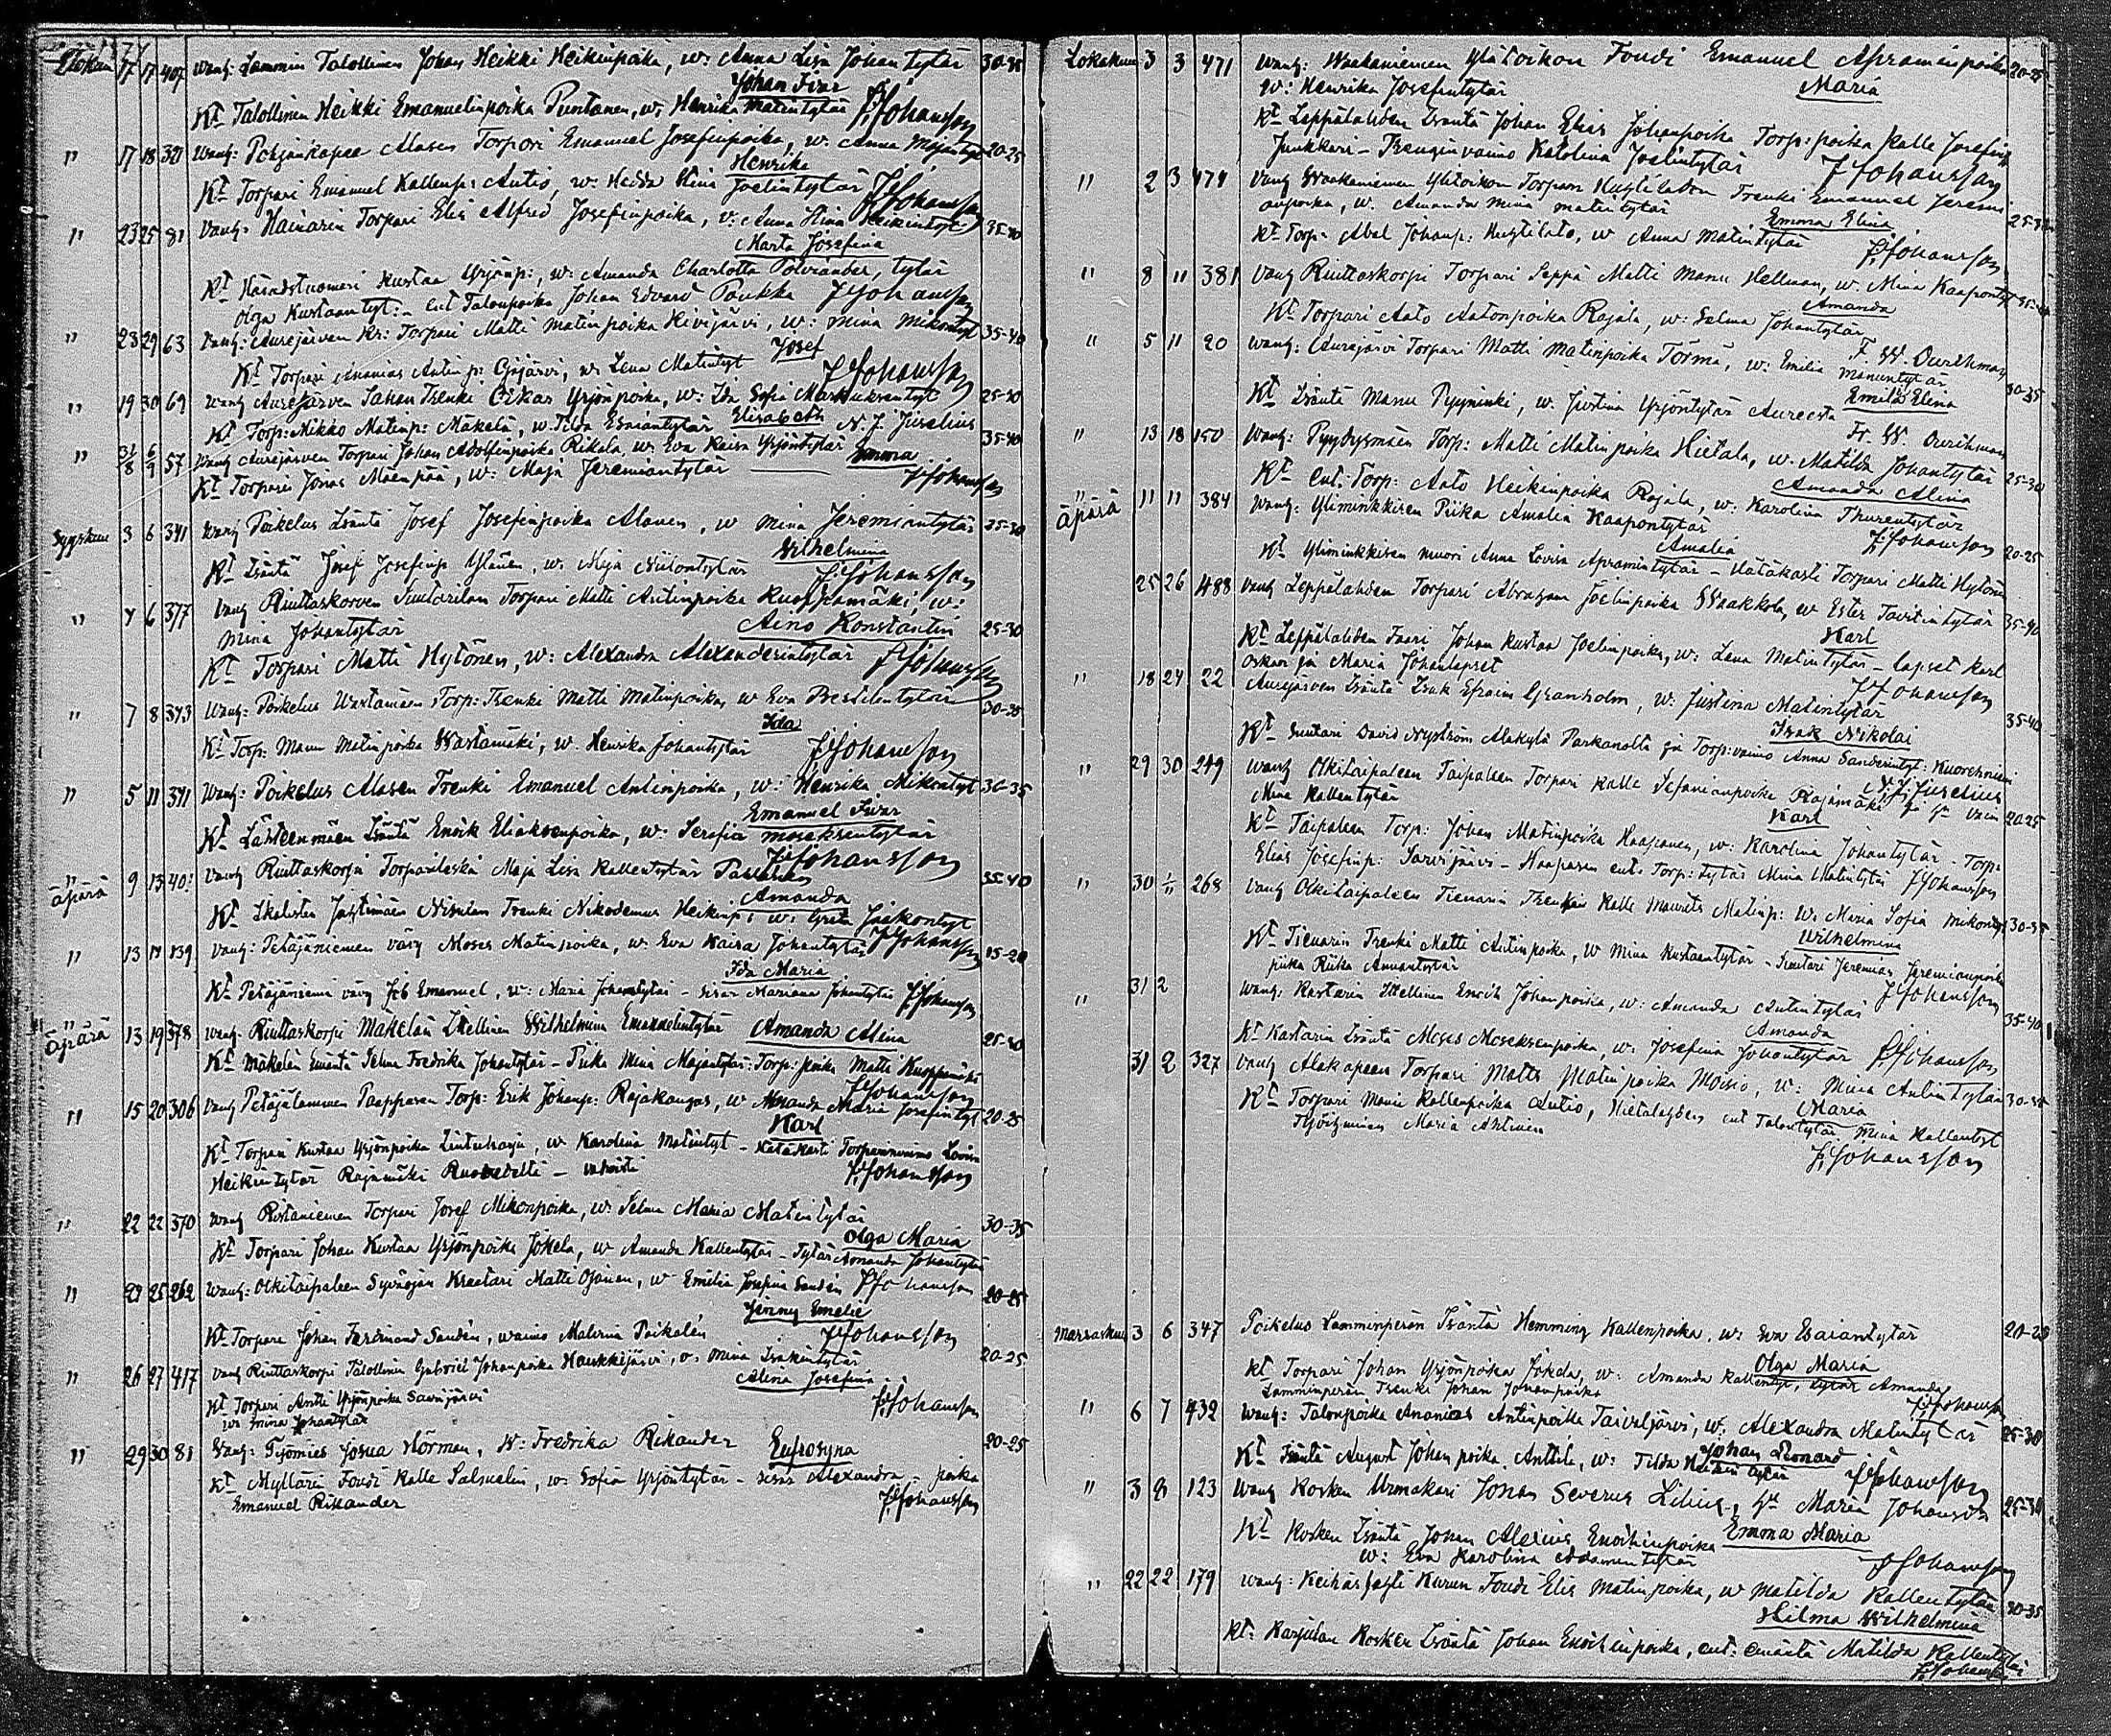 1874
Elokuu 17 17 407 Wanh: Lammin Talollinen Johan Heikki Heikinpoika, w: Anna Lisa Johantytär 30-35
Johan Ivar
Kt Talollinen Heikki Emanuelinpoika Puntanen, w: Henrika Matintytär J Johansson
" 17 18 321 Wanh: Pohjankapee Alasen Torpari Emanuel Josefinpoika, w: Anna 20-25
Henriki
Kt Torpari Emanuel Kallenp: Autio, w: Hedda Stina Joelintytär J Johansson
" 23 25 81 Vanh: Hainarin Torpari Elis Alfred Josefinpoika, v: Anna Stina Heikintyt: 35-40
Marta Josefina
Kt Kustaa Yrjönp:, w: Amanda Charlotta tytär
Olga Kustaantyt: - ent Talonpoika Johan Edvard Poukka J Johansson
" 23 29 63 Vanh: Aurejärven Kr: Torpari Matti Matinpoika Kivijärvi, w: Mina Mikontyt 35-40
Josef
Kt Torpari Ananias Antinp: Ojajärvi, w: Lena Matintyt J Johansson
" 19 30 69 Wanh Aurejärven Sahan Trenki Oskar Yrjönpoika, w: Ida Sofia Markuksentyt 25-30
Kt Torp: Mikko Matinp: Mäkelä, w. Tilda Esaiantytär Elisabeth N. J. Juselius
" 31/8 6/9 57 Wanh Aurejärven Torpari Johan Adolfinpoika Rikala, w: Eva Kaisa Yrjöntytär Emma 35-40
Kt Torpari Jonas Mäenpää, w: Maja Jeremiantytär J Johansson
Syyskuu 3 6 341 Wanh Poikelus Isäntä Josef Josefinpoika Alanen, w Mina Jeremiantytär 25-30
Wilhelmina
Kt Isäntä Josef Josefinp Ylänen, w: Maja Niilontytär J Johansson
" 4 6 377 Vanh Riuttaskorven Torpari Matti Antinpoika Kuoppamäki, w:
Mina Johantytär Aino Konstantin 25-30
Kt Torpari Matti Hytönen, w: Alexandra Alexanderintytär J Johansson
" 7 8 343 Wanh: Poikelus Wastamäen Torp: Trenki Matti Matinpoika, w Eva 30-35
Ida
Kt Torp: Manu Matinpoika Wastamäki, w. Henrika Johantytär J Johansson
" 5 11 341 Wanh: Poikelus Alasen Trenki Emanuel Antinpoika, w: Henrika Mikontyt 30-35
Emanuel Ivar
Kt Lähteenmäen Isäntä Enok Eliaksenpoika, w: Serafia Moseksentytär
J Johansson
" äpärä 9 13 40 Vanh Riuttaskorpi Torparileski Maja Lisa Kallentytär 35-40
Amanda
Kt Trenki Nikodemus Heikinp: w: Greta Jaakontyt
J Johansson
" 13 17 139 Vanh: Petäjäniemen väry Moses Matinpoika, w: Eva Kaisa Johantytär 15-20
Ida Maria
Kt Petäjäniemi väry Job Emanuel, w: Maria Johantytär - sisar Mariana Johantytär J Johansson
" äpärä 13 19 378 Wanh: Riuttaskorpi Mäkelän Itellinen Wilhelmina Emanuelintytär Amanda Alina 25-30
Kt Mäkelän Emäntä Selma Fredrika Johantytär - Piika Mina Majantytär: Torp: poika Matti Kuoppamäki
J Johansson
" 15 20 306 Vanh Petäjälammen Paapparan Torp: Erik Johanp: Rajakangas, w Amanda Maria Josefintyt 20-25
Karl
Kt Torpari Kustaa Yrjönpoika Lintuharju, w Karolina Matintyt - Hätäkasti Torparinvaimo Lovisa
Heikintytär Rajamäki Ruovedeltä - J Johansson
" 22 22 370 Wanh Ristaniemen Torpari Josef Mikonpoika, w: Selma Maria Matintytär 30-35
Olga Maria
Kt Torpari Johan Kustaa Yrjönpoika Jokela, w Amanda Kallentytär - Tytär Amanda Johantytär
" 22 25 262 Wanh: Olkitaipaleen Syväojan Kraatari Matti Ojanen, w Emilia Josefina Sandén J Johansson 20-25
Jenny Emelie
Kt Torpari Johan Ferdinand Sandén, waimo Malvina Poikalén J Johansson
" 26 27 417 Vanh Riuttaskorpi Talollinen Gabriel Johanpoika Haukkijärvi, v: Mina Isakintytär 20-25
Alina Josefina
Kt Torpari Antti Yrjönpoika Sarvijärvi
w: Mina Johantytär J Johansson
" 29 30 81 Vanh: Työmies Josua Hörman, w: Fredrika Rikander Eufrosyna 20-25
Kt Myllärin Foudi Kalle Salmelin, w: Sofia Yrjöntytär - sisar Alexandra - poika
Emanuel Rikander J Johansson
Lokakuu 3 3 471 Wanh: Waakaniemen Ylätoikon Foudi Emanuel Apraminpoika 20-25
w: Henrika Josefintytär Maria
Kt Leppälahden Isäntä Johan Elias Johanpoika Torp: poika Kalle Josefinp
Junkkari - Trenginvaimo Katolina Joelintytär J Johansson
" 2 3 474 Vanh Waakaniemen Ylätoikon Torpan Huhtiladon Trenki Emanuel Jeremi
anpoika, w. Amanda Mina Matintytär Emma Elina 25-30
Kt Torp: Abel Johanp: Huhtilato, w Anna Matintytär J Johansson
" 8 11 381 Vanh Riuttaskorpi Torpari Seppä Matti Manu Hellman, w. Mina Kaapontyt
Amanda
Kt Torpari Aato Aatonpoika Rajala, w: Selma Johantytär
F. W. Durchman
" 5 11 20 Wanh: Aurejärvi Torpari Matti Matinpoika Törmä, w: Emilia Manuntytär 30-35
Emilia Elena
Kt Isäntä Manu Pyyninki, w. Justina Yrjöntytär Aureesta
Fr. W. Durchman
" 13 18 150 Wanh: Pyydysmäen Torp: Matti Matinpoika Hietala, w. Matilda Johantytär 25-30
Amanda Alina
Kt Ent. Torp: Aato Heikinpoika Rajala, w: Karolina Thurentytär
J Johansson
" äpärä 11 11 384 Wanh: Yliminkkisen Piika Amalia Kaapontytär 20-25
Amalia
Kt Yliminkkisen muori Anna Lovisa Apramintytär - Hätäkasti Torpari Matti Hytönen
25 26 488 Vanh Leppälahden Torpari Abraham Joelinpoika Waakkola, w Ester Tavitintytär 35-40
Karl
Kt Leppälahden Faari Johan Kustaa Joelinpoika, w: Lena Matintytär - lapset Karl
Oskar ja Maria Johanlapset J Johansson
" 18 24 22 Aurejärven Isäntä Isak Efraim Granholm, w: Justina Matintytär 35-40
Isak Nikolai
Kt Suutari David Nyström Alakylä Parkanolta ja Torp:vaimo Anna Sanderintyt: Kuoresniemi
N. J. Juselius
" 29 30 249 Wanh Olkitaipaleen Taipaleen Torpari Kalle Stefaninpoika Rajamäki 20-25
Mina Kallentytär Karl
Kt Taipaleen Torp: Johan Matinpoika Haapanen, w: Karolina Johantytär - Torp:
Elias Josefinp: Sarvijärvi - Haapasen ent. Torp: tytär Mina Matintytär J Johansson
" 30 1/11 268 Vanh Olkitaipaleen Tienarin Trenki Kalle Maurits Matinp: w: Maria Sofia Mikontyt 30-35
Wilhelmina
Kt Tienarin Trenki Matti Antinpoika, w Mina Kustaantytär - Suutari Jeremias Jeremianpoika
piika Riika Annantytär J Johansson
" 31 2 Wanh: Rastarin Itellinen Enok Johanpoika, w: Amanda Antintytär 35-40
Amanda
Kt Rastarin Isäntä Moses Moseksenpoika, w: Josefina Johantytär J Johansson
31 2 327 Vanh Alakapeen Torpari Matts Matinpoika Moisio, w: Mina Antintytär 30-35
Maria
Kt Torpari Manu Kallenpoika Autio, ent Talontytär Mina Kallentyt
Maria Ahtinen
J Johansson
Marraskuu 3 6 347 Poikelus Lamminperän Isäntä Hemming Kallenpoika, w: Eva Esaiantytär 20-25
Olga Maria
Kt Torpari Johan Yrjönpoika Jokela, w: Amanda Kallentyt, tytär Amanda
Lamminperän Trenki Johan Johanpoika J Johansson
" 6 7 432 Wanh: Talonpoika Ananias Antinpoika Taivaljärvi, w: Alexandra Matintytär 25-30
Johan Leonard
Kt Isäntä August Johanpoika Anttila, w: Tilda Heikintytär J Johansson
" 3 8 123 Wanh Kosken Urmakari Jonas Severus Lilius, Hu Maria Johansdr 25-30
Emma Maria
Kt Kosken Isäntä Johan Alexius Enokinpoika
w: Eva Karolina Adamintytär J Johansson
" 22 22 179 Wanh: Keihäslahti Kurun Foudi Elis Matinpoika, w Matilda Kallentytär 30-35
Hilma Wilhelmina
Kt: Karjulan Kosken Isäntä Johan Enokinpoika, ent: emäntä Matilda Kallentytär
J Johansson